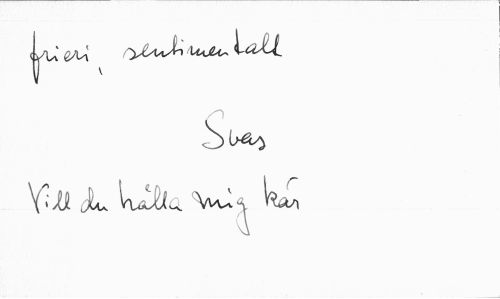 frieri, sentimentalt
Svar
Vill du hålla mig kär